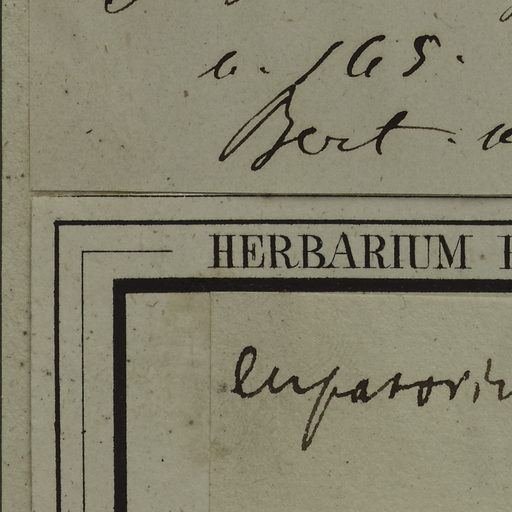 n. 165.
Bert.
HERBARIUM
Eupatoriu